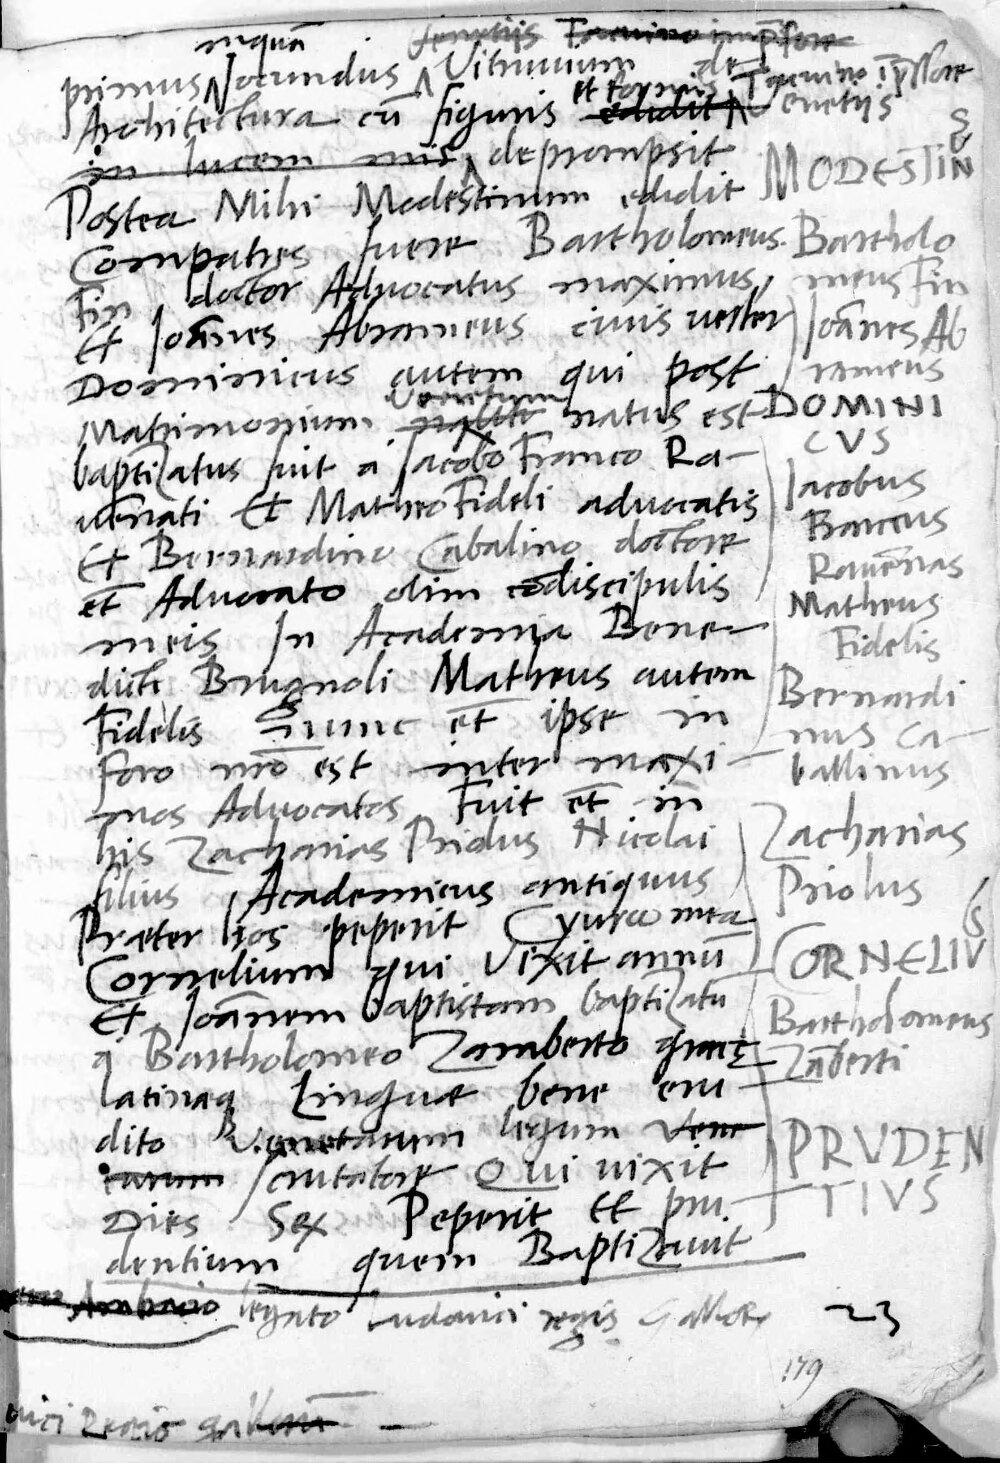 inquā
primus Jocundus Vitruuium de
Architectura cū figuris et formis Venetiis
deprompsit
Postea Mihi Modestinum edidit
Compatres fuere Bartholomeus
Fin doctor Advocatus maximus,
Et Joānes Abrameus civis vester
Dominicus autem qui post
Matrimonium natus est
baptizatus fuit a Jacobo Franco Ra-
uenati Et Matheo Fideli advocatis
Et Bernardino Cabalino doctore
et Advocato olim cōdiscipulis
meis In Academia Bene-
dicti Brugnoli Matheus autem
Fidelis nunc et ipse in
foro nrō est inter maxi-
mos Advocatos Fuit et in
his Zacharias Priolus Nicolai
filius Academicus antiquus
Præter hos peperit mea
Cornelium qui Vixit annū
Et Joānem baptistam baptizatū
a Bartholomeo Zamberto græcę
latinæq Linguæ bene eru-
dito Venetarum legum
scrutatore Qui vixit
Dies Sex Peperit Et pru-
dentium quem Baptizavit
legato Ludovici regis Gallor
MODESTIN
Bartholo
meus Fin
Joānes Ab
rameus
DOMINI
CVS
Jacobus
Rauēnas
Matheus
Fidelis
Bernardi
nus Ca-
ballinus
Zacharias
Priolus
CORNELIVS
Bartholomeus
Zāberti
PRVDEN
TIVS
23
179